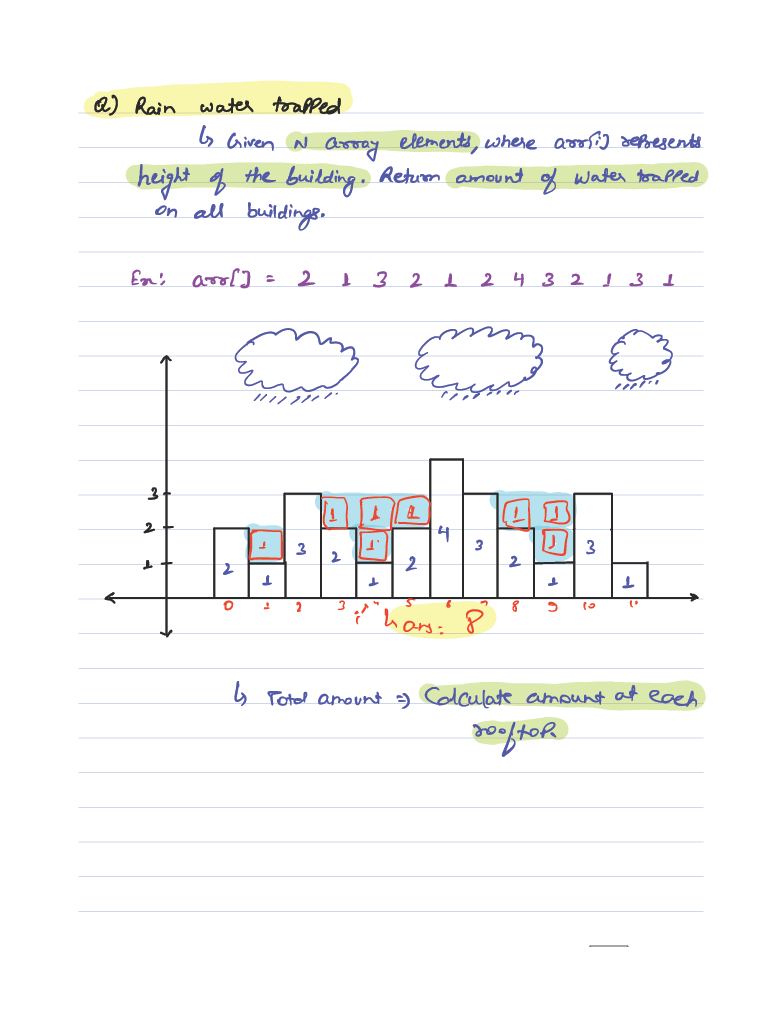 Q) Rain water trapped
↳ Given N array elements, where arr[i] represents
height of the building. Return amount of water trapped
on all buildings.
Ex: arr[] = 2 1 3 2 1 2 4 3 2 1 3 1
3 1 1 1 1 1
2 1 3 1 4 3 1 3
2 2 2 2
1 1 1 1 1
0 1 2 3 4 5 6 7 8 9 10 11
↳ ans: 8
↳ Total amount => Calculate amount at each
rooftop.